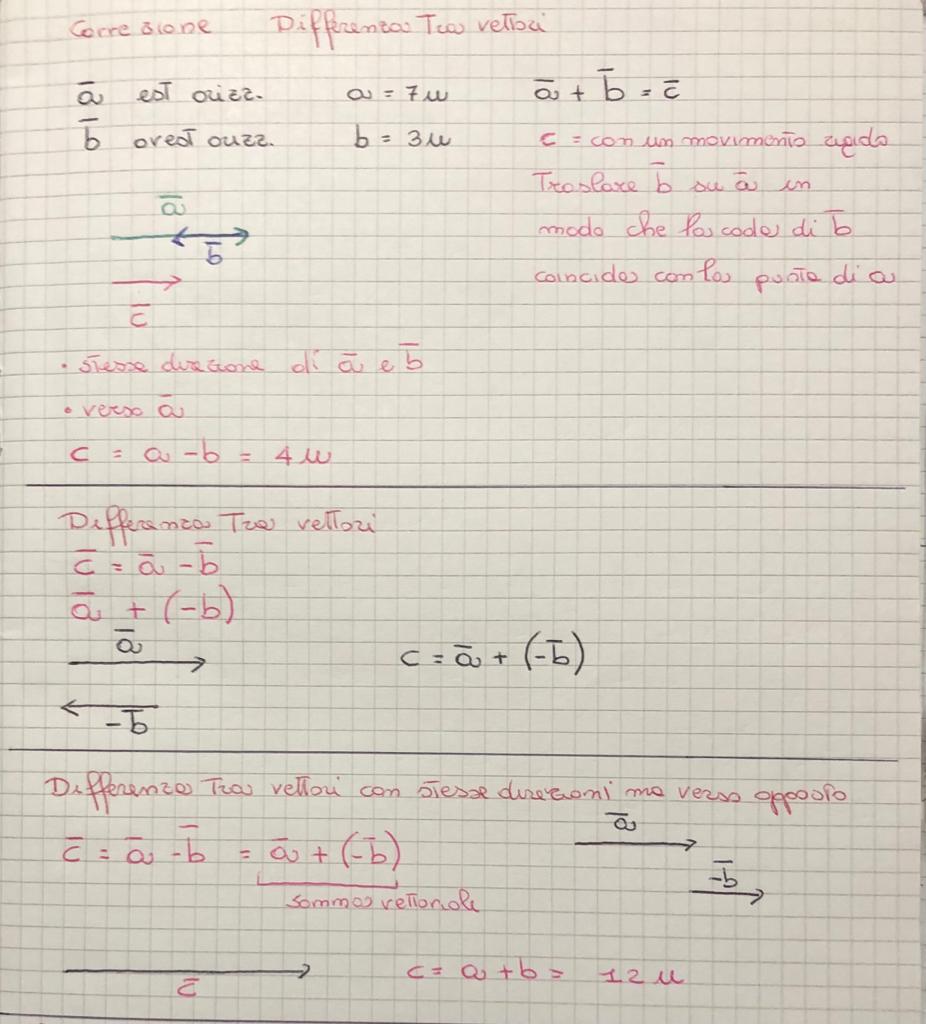 Correzione Differenza Tra vettori
a̅ est orizz. a = 7u a̅ + b̅ = c̅
b̅ ovest orizz. b = 3u c = con un movimento rigido
Traslare b̅ su a̅ in
a̅
modo che la coda di b̅
b̅
coincida con la punta di a
c̅
• stessa direzione di a̅ e b̅
• verso a̅
c = a - b = 4u
Differenza Tra vettori
c̅ = a̅ - b̅
a̅ + (-b)
a̅
c = a̅ + (-b̅)
-b̅
Differenza Tra vettori con stesse direzioni ma verso opposto
a̅
c̅ = a̅ - b̅ = a̅ + (-b̅)
-b̅
somma vettoriale
c̅ c = a + b = 12u